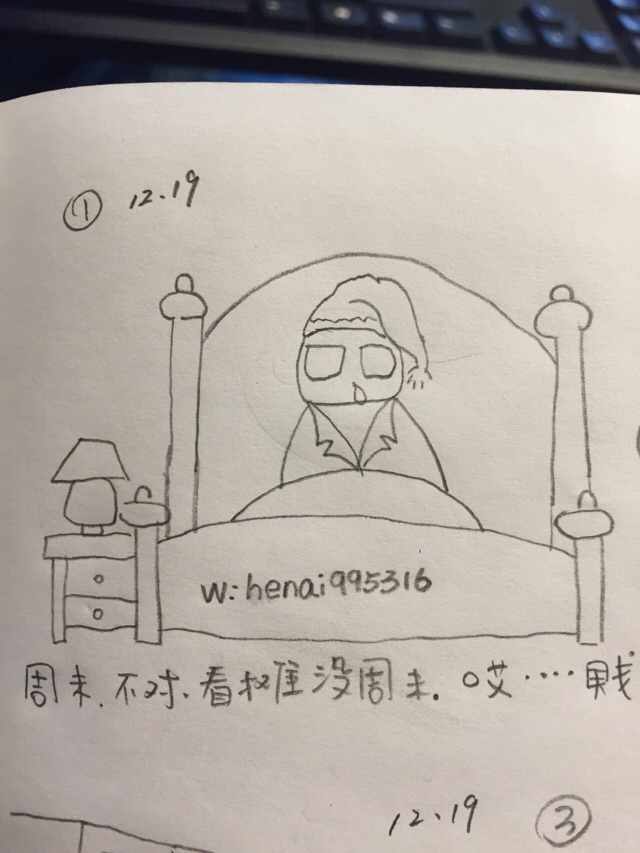 ① 12.19
w:henai995316
周末.不对、看权隹没周末.哎····贱
12.19 ③